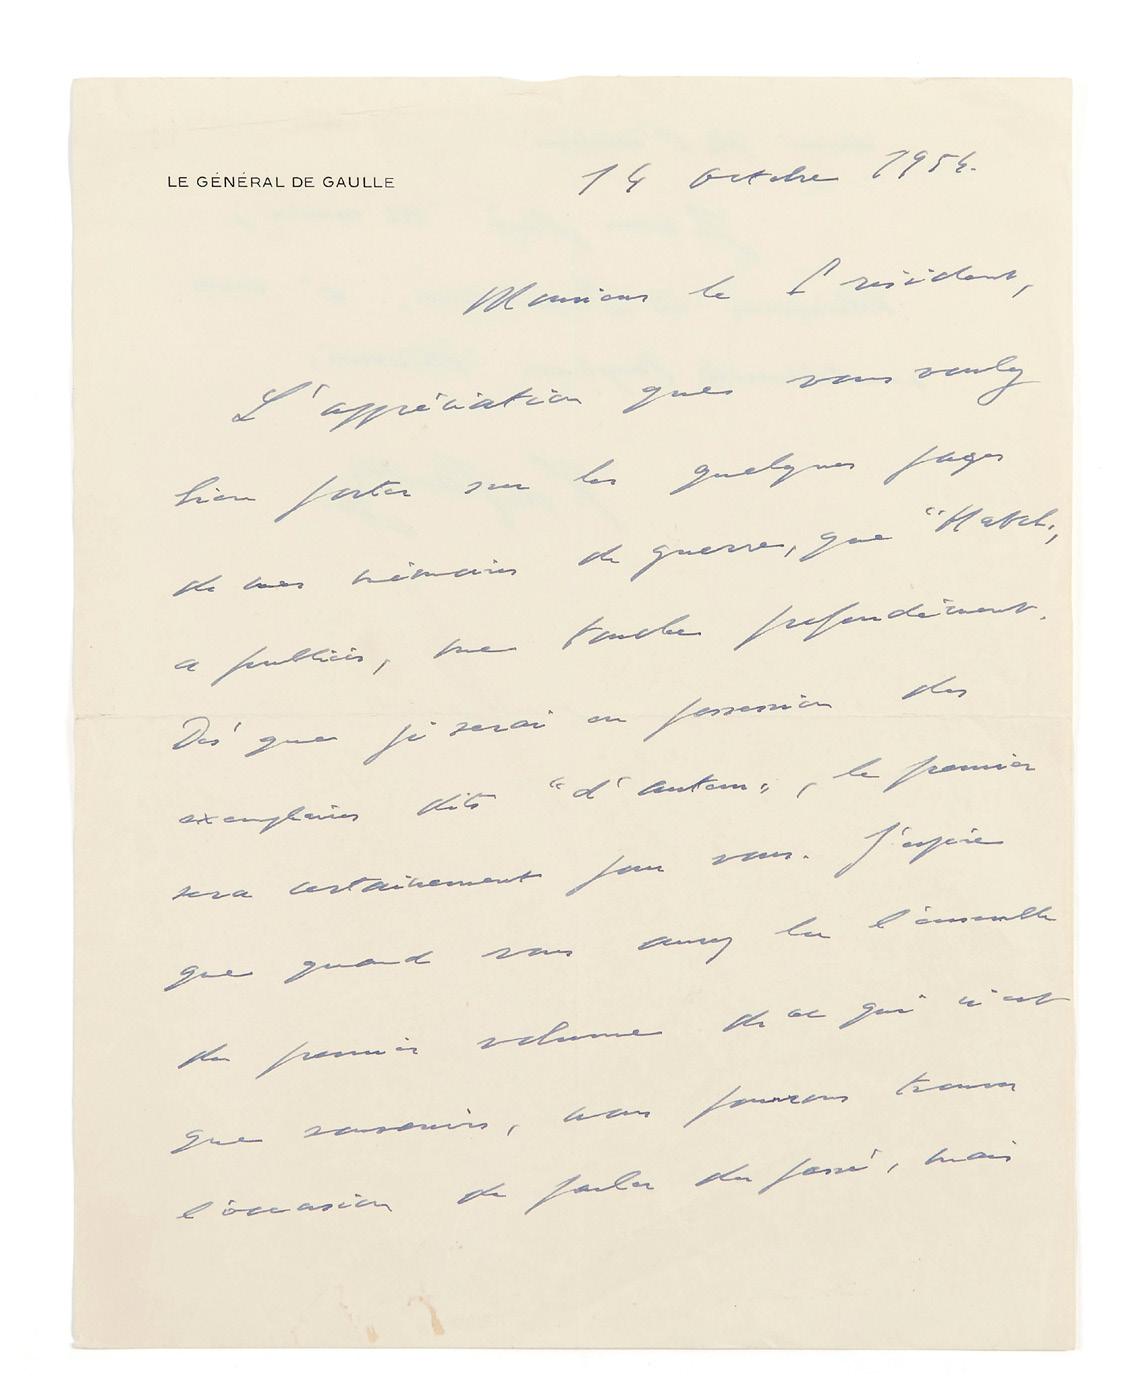 LE GÉNÉRAL DE GAULLE
14 octobre 1954.
Monsieur le Président,
L'appréciation que vous voulez
bien porter sur les quelques pages
de mes mémoires de guerre, que "Match"
a publiées, me touche profondément.
Dès que je serai en possession des
exemplaires dits "d'auteur", le premier
sera certainement pour vous. J'espère
que quand vous aurez lu l'ensemble
du premier volume de ce qui n'est
que souvenirs, nous pourrons trouver
l'occasion de parler du passé, mais